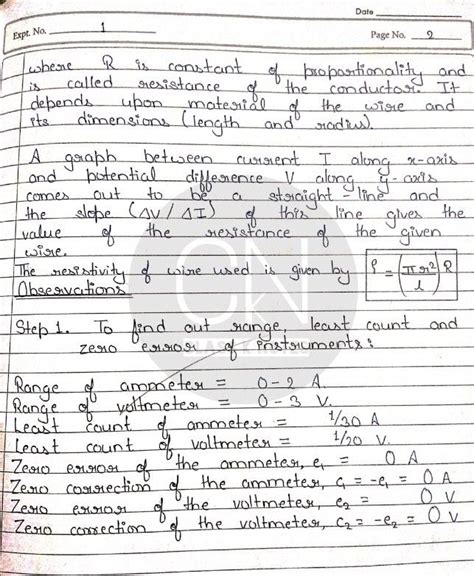 Date
Expt. No. 1
Page No. 2
where R is constant of proportionality and
is called resistance of the conductor. It
depends upon material of the wire and
its dimensions (length and radius).
A graph between current I along x-axis
and potential difference V along y-axis
comes out to be a straight-line and
the slope (ΔV/ΔI) of this line gives the
value of the resistance of the given
wire.
The resistivity of wire used is given by ρ = (πr²/l) R
Observations
Step 1. To find out range, least count and
zero error of instruments:
Range of ammeter = 0-2 A.
Range of voltmeter = 0-3 V.
Least count of ammeter = 1/30 A
Least count of voltmeter = 1/20 V.
Zero error of the ammeter, e₁ = 0 A
Zero correction of the ammeter, c₁ = -e₁ = 0 A
Zero error of the voltmeter, e₂ = 0 V
Zero correction of the voltmeter, c₂ = -e₂ = 0 V